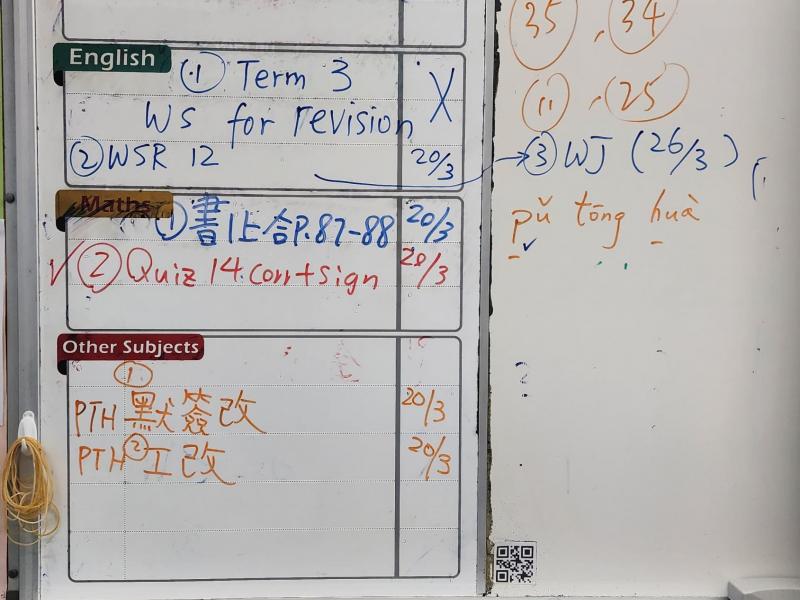 35, 34
11, 25
English
① Term 3 X
WS for revision
② WSR 12 20/3
③ WJ (26/3)
Maths
① 書1上合P.87-88 20/3
pǔ tōng huà
✓ ② Quiz 14 corr+sign 20/3
Other Subjects
①
PTH 默簽改 20/3
PTH ② 工改 20/3